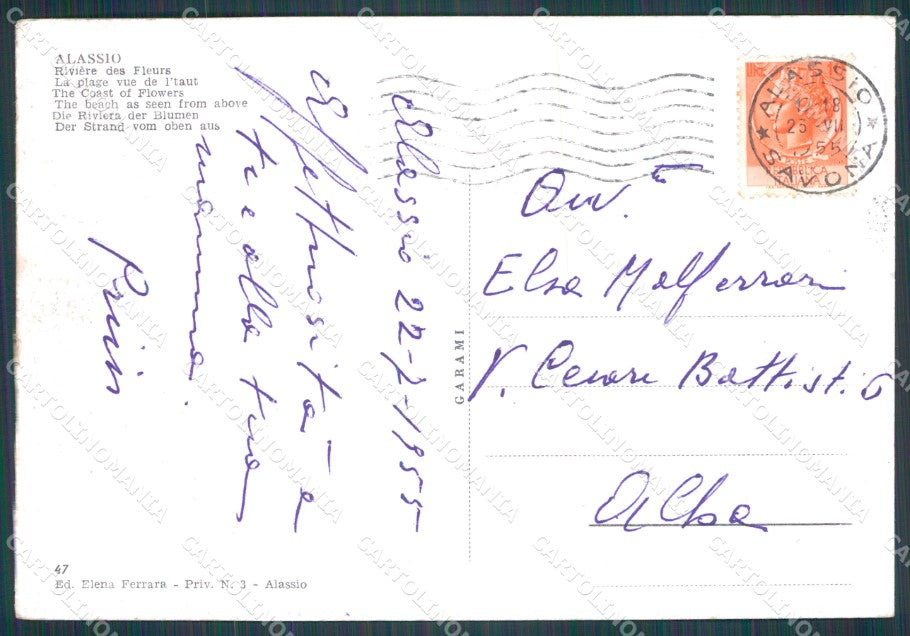 ALASSIO
Rivière des Fleurs
La plage vue de l'taut
The Coast of Flowers
The beach as seen from above
Die Riviera der Blumen
Der Strand vom oben aus
Alassio 22-7-1955
Affettuosità a
te e alla tua
mamma.
GARAMI
LIRE
ALASSIO
SAVONA
25 VII
1955
Elsa Malferrari
V. Cesare Battisti 6
Alba
47
Ed. Elena Ferrara - Priv. N. 3 - Alassio
CARTOLINOMANIA